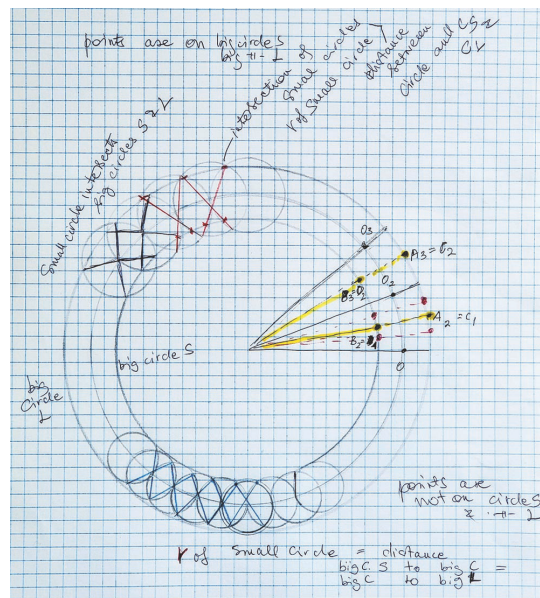 points are on big circles
big -"- L
intersection of
small circles
r of small circle >
distance
between
circle and CS z
CL
Small circle intersects
big circles S z L
O3
A3 = C2
B3 = D2
O2
A2 = C1
B2 =
O
big circle S
big
Circle
L
points are
not on circles
z -"- L
r of small circle = distance
big C S to big C =
big C to big L